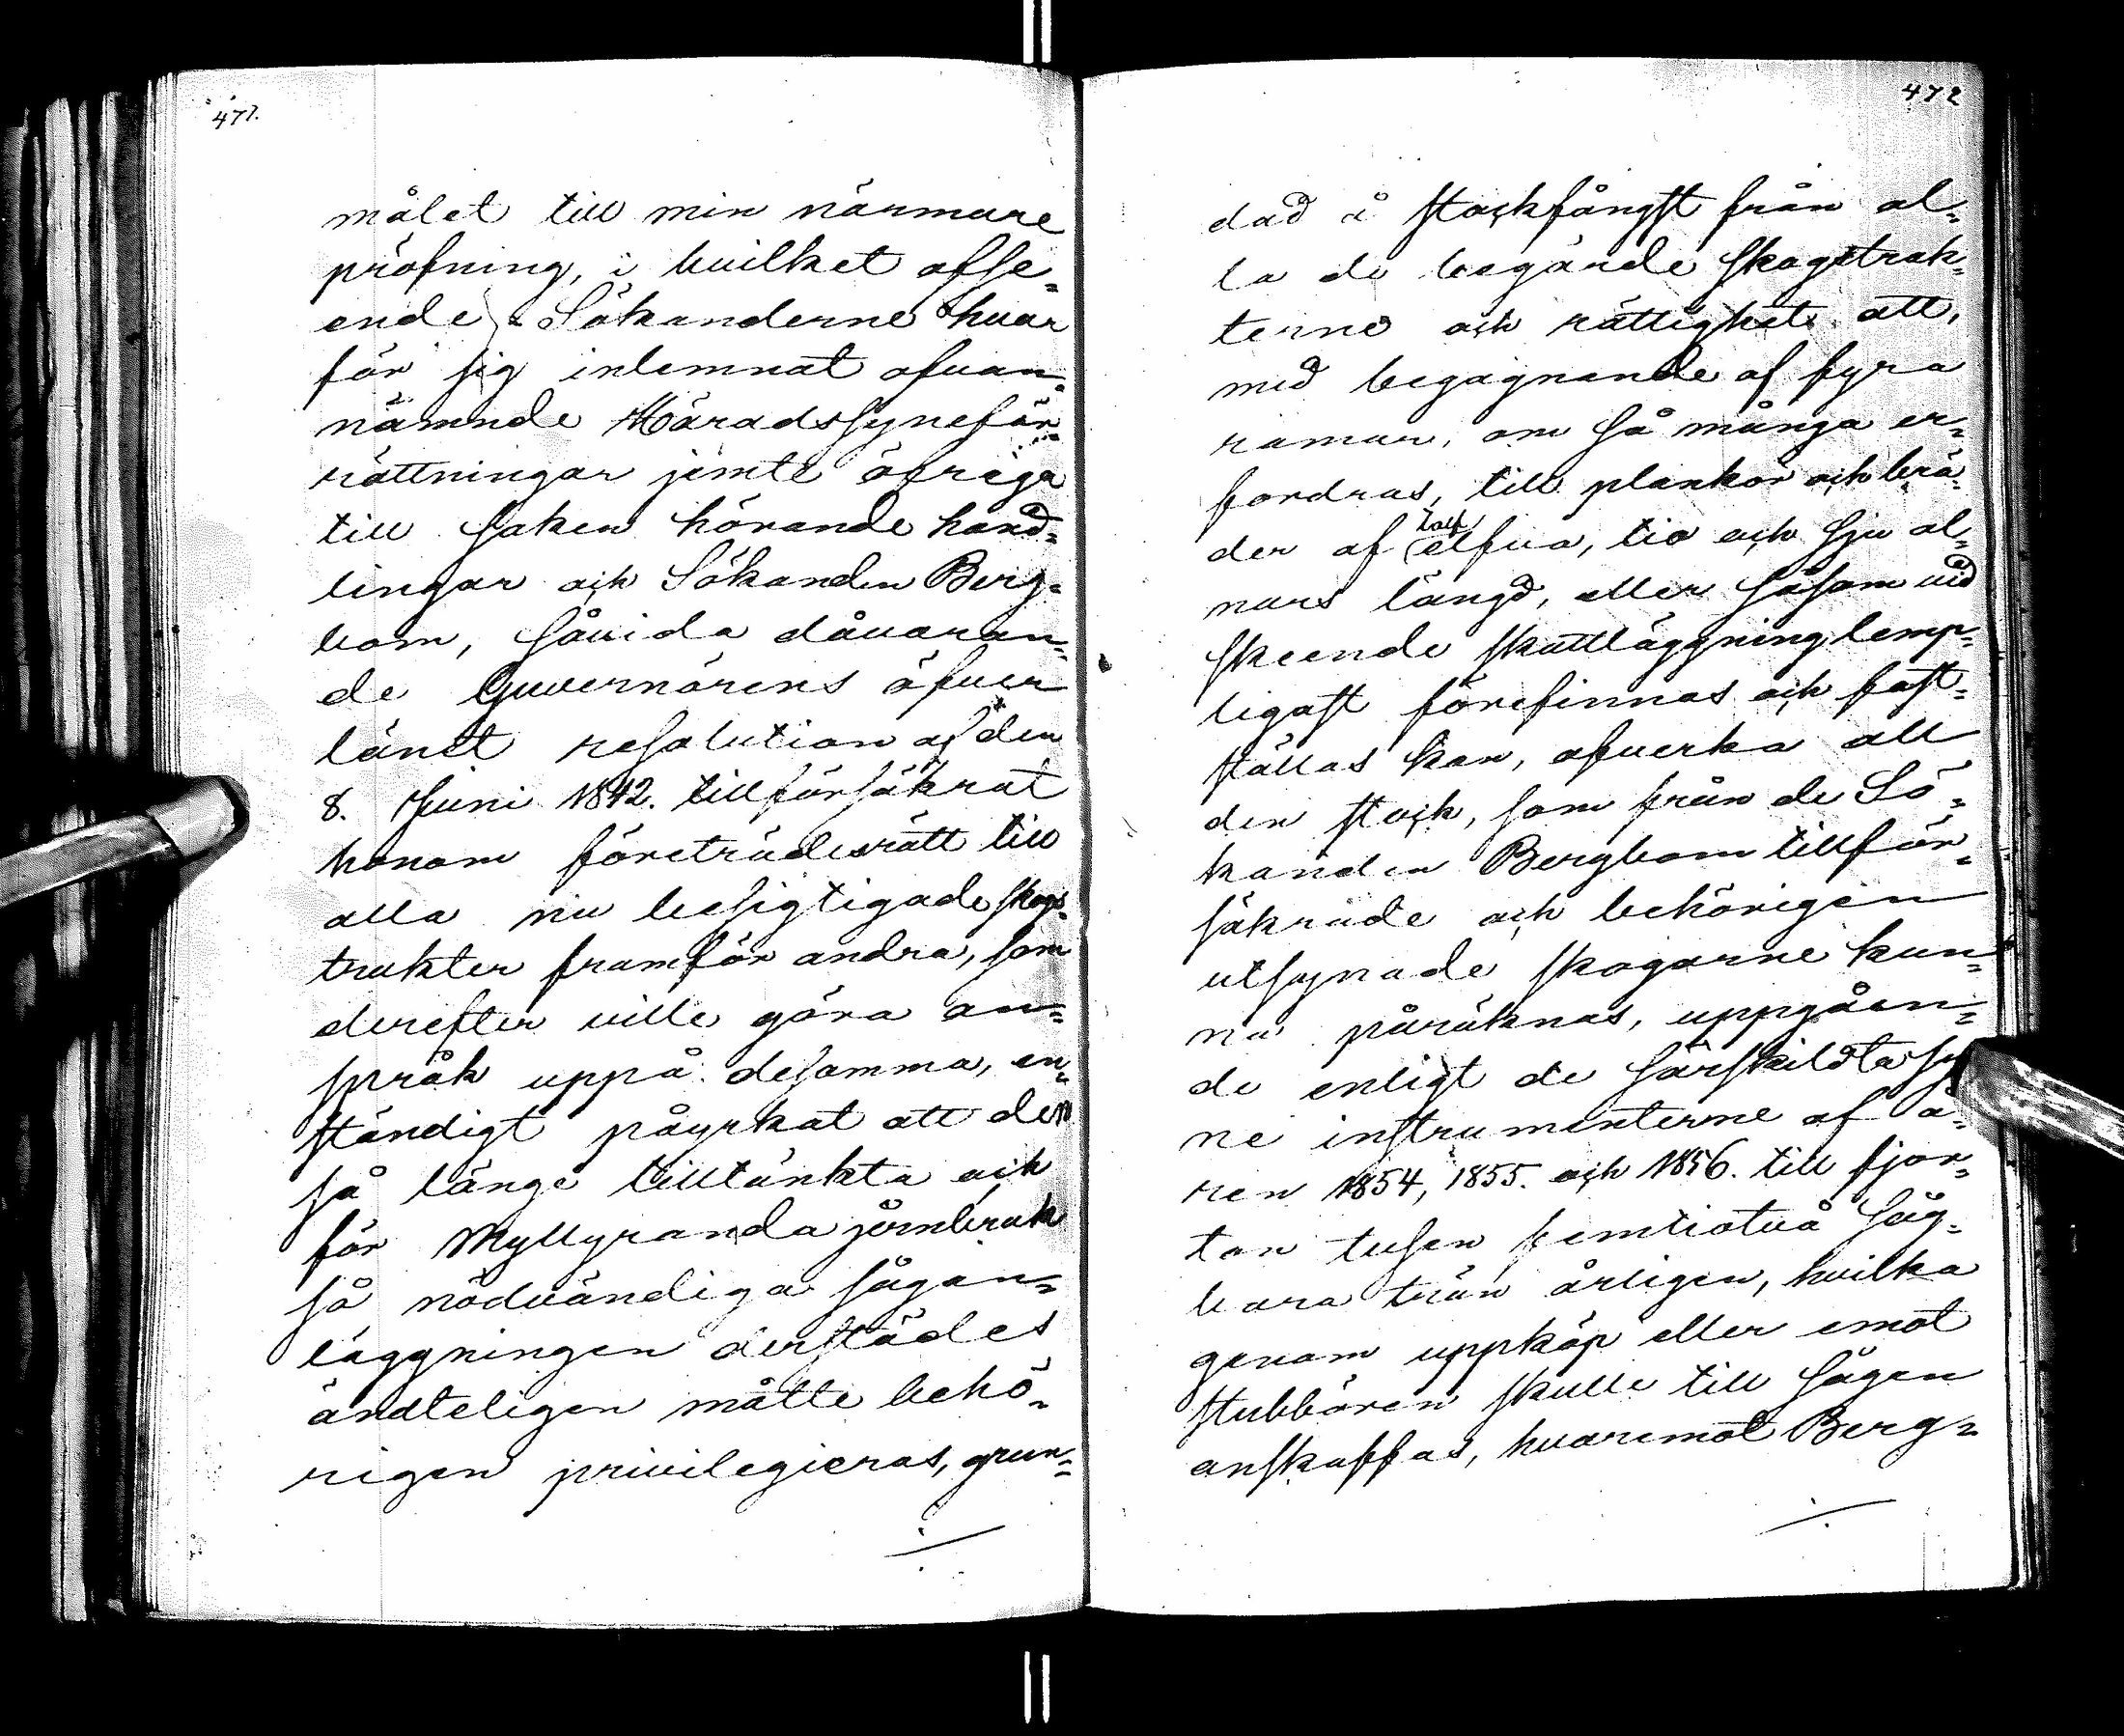 471.
målet till min närmare
pröfning, i hvilket afse=
ende Sökanderne hvar
för sig inlemnat ofvan=
nämnde Häradssyneför=
rättningar jemte öfriga
till saken hörande hand=
lingar och Sökanden Berg=
bom, såvida dåvaran=
de Guvernörens öfver
länet resolution af den
8. Juni 1842. tillförsäkrat
honom företrädesrätt till
alla nu besigtigade skogs=
trakter framför andra, som
derefter ville göra an=
språk uppå desamma, en=
ständigt påyrkat att den
så länge tilltänkta och
för Myllyranda jernbruk
så nödvändiga sågan=
läggningen derstädes
ändteligen måtte behö=
rigen privilegieras, grun=
472
dad å stockfångst från al=
la de begärde skogstrak=
terne och rättighet att,
med begagnande af fyra
ramar, om så många er=
fordras, till plankor och brä=
der af tolf elfva, tio och sju al=
nars längd, eller såsom vid
skeende skattläggning lemp=
ligast förefinnas och fast=
ställas kan, afverka all
den stock, som från de Sö=
kanden Bergbom tillför=
säkrade och behörigen
utsynade skogarne kun=
na påräknas, uppgåen=
de enligt de särskildta sy
ne instrumenterne af å=
ren 1854, 1855. och 1856. till fjor=
ton tusen femtiotvå såg=
bara trän årligen, hvilka
genom uppköp eller emot
stubbören skulle till sågen
anskaffas, hvaremot Berg=